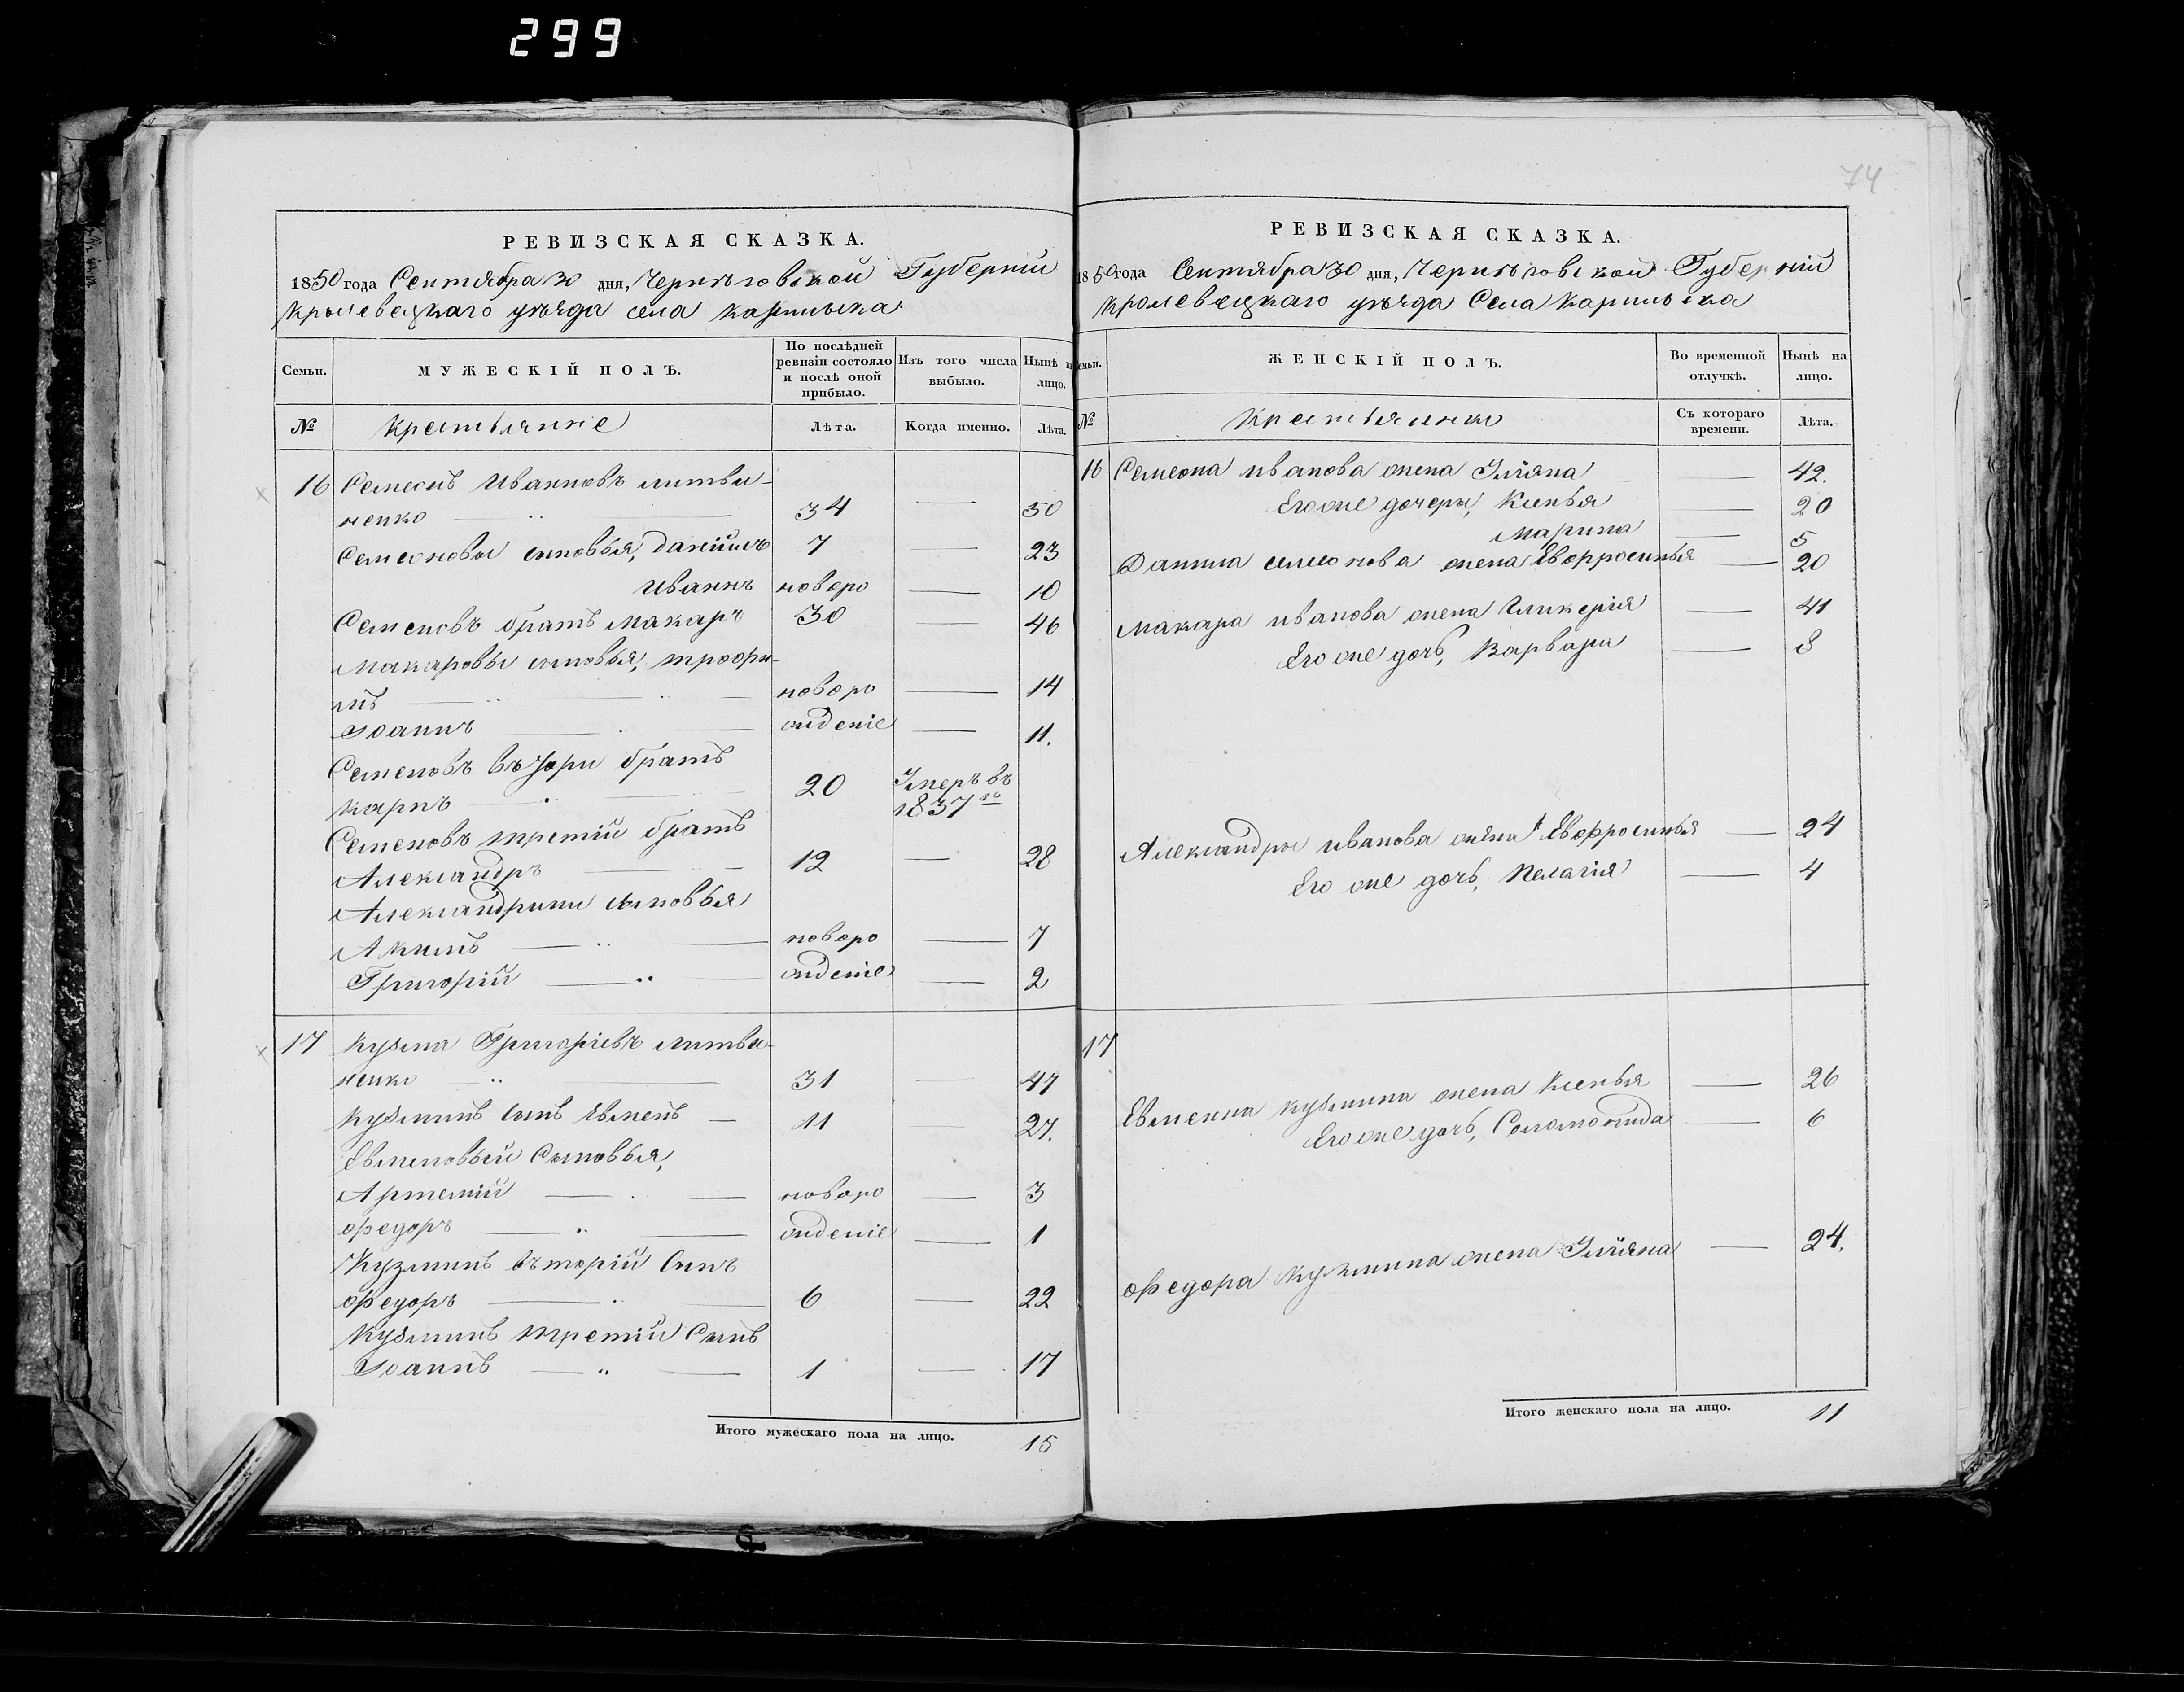 299
74
РЕВИЗСКАЯ СКАЗКА.
1850 года Сентября 30 дня, Черниговской Губерній
Кролевецкаго уѣзда села Карпилька
Семьи. МУЖЕСКІЙ ПОЛЪ. По послѣдней ревизіи состояло и послѣ оной прибыло. Изъ того числа выбыло. Нынѣ на лицо.
№ Крестьянне Лѣта. Когда именно. Лѣта.
16 Семеонъ Ивановъ литви-
ненко 34 — 50
Семеоновы сыновья, Даніилъ 7 — 23
Иванъ новоро — 10
Семеновъ братъ Макаръ 30 — 46
Макаровы сыновья, трофи-
мъ новоро — 14
Іоаннъ жденіе — 11.
Семеновъ братъ
Карпъ 20 Умеръ въ 1837
Семеновъ третій братъ
Александръ 12 — 28
Александрини сыновья
Акимъ новоро — 7
Григорій жденіе — 2
17 Кузма Григоріевъ литви-
ненко 31 — 47
Кузминъ сынъ Евменъ — 11 — 27.
Евменовый Сыновья,
Артемій новоро — 3
Федоръ жденіе — 1
Кузминъ вторій Сынъ
Федоръ 6 — 22
Кузминъ третій Сынъ
Іоаннъ 1 — 17
Итого мужескаго пола на лицо. 15
РЕВИЗСКАЯ СКАЗКА.
1850 года Сентября 30 дня, Черниговской Губерній
Кролевецкаго уѣзда Села Карпилька
Семьи. ЖЕНСКІЙ ПОЛЪ. Во временной отлучкѣ. Нынѣ на лицо.
№ Крестьянки Съ котораго времени. Лѣта.
16 Семеона иванова жена Уліяна — 42.
Его же дочеры, Ксенья — 20
Марина — 5
Данила семеонова жена Евфросинья — 20
Макара иванова жена Гликерія — 41
Его же дочь, Варвара — 8
Александры иванова жена Евфросинья — 24
Его же дочь, Пелагія — 4
17
Евменна кузмина жена Ксенья — 26
Его же дочь, Соломонида — 6
Федора Кузмина жена Уліяна — 24.
Итого женскаго пола на лицо. 11